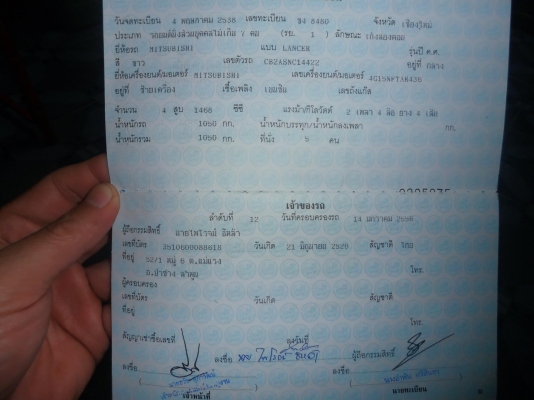 วันจดทะเบียน 4 พฤษภาคม 2538 เลขทะเบียน ขง 8480 จังหวัด เชียงใหม่
ประเภท รถยนต์นั่งส่วนบุคคลไม่เกิน 7 คน (รย. 1 ) ลักษณะ เก๋งสองตอน
ยี่ห้อรถ MITSUBISHI แบบ LANCER รุ่นปี ค.ศ.
สี ขาว เลขตัวรถ อยู่ที่ กลาง
ยี่ห้อเครื่องยนต์/มอเตอร์ MITSUBISHI เลขเครื่องยนต์/มอเตอร์
อยู่ที่ ซ้ายเครื่อง เชื้อเพลิง เบนซิน เลขถังแก๊ส
จำนวน 4 สูบ 1468 ซีซี แรงม้า/กิโลวัตต์ 2 เพลา 4 ล้อ ยาง 4 เส้น
น้ำหนักรถ 1050 กก. น้ำหนักบรรทุก/น้ำหนักลงเพลา กก.
น้ำหนักรวม 1050 กก. ที่นั่ง 5 คน
เจ้าของรถ
ลำดับที่ 12 วันที่ครอบครองรถ 14 มกราคม
ผู้ถือกรรมสิทธิ์ นายไพโรจน์
เลขที่บัตร วันเกิด 21 มิถุนายน สัญชาติ ไทย
ที่อยู่ 52/1 หมู่ 6 ต.แม่แรง
อ.ป่าซาง ลำพูน โทร.
ผู้ครอบครอง
เลขที่บัตร วันเกิด สัญชาติ
ที่อยู่
โทร.
สัญญาเช่าซื้อเลขที่ ลงวันที่
ลงชื่อ ลงชื่อ นาย ไพโรจน์ ผู้ถือกรรมสิทธิ์ ลงชื่อ
เจ้าหน้าที่ นายทะเบียน